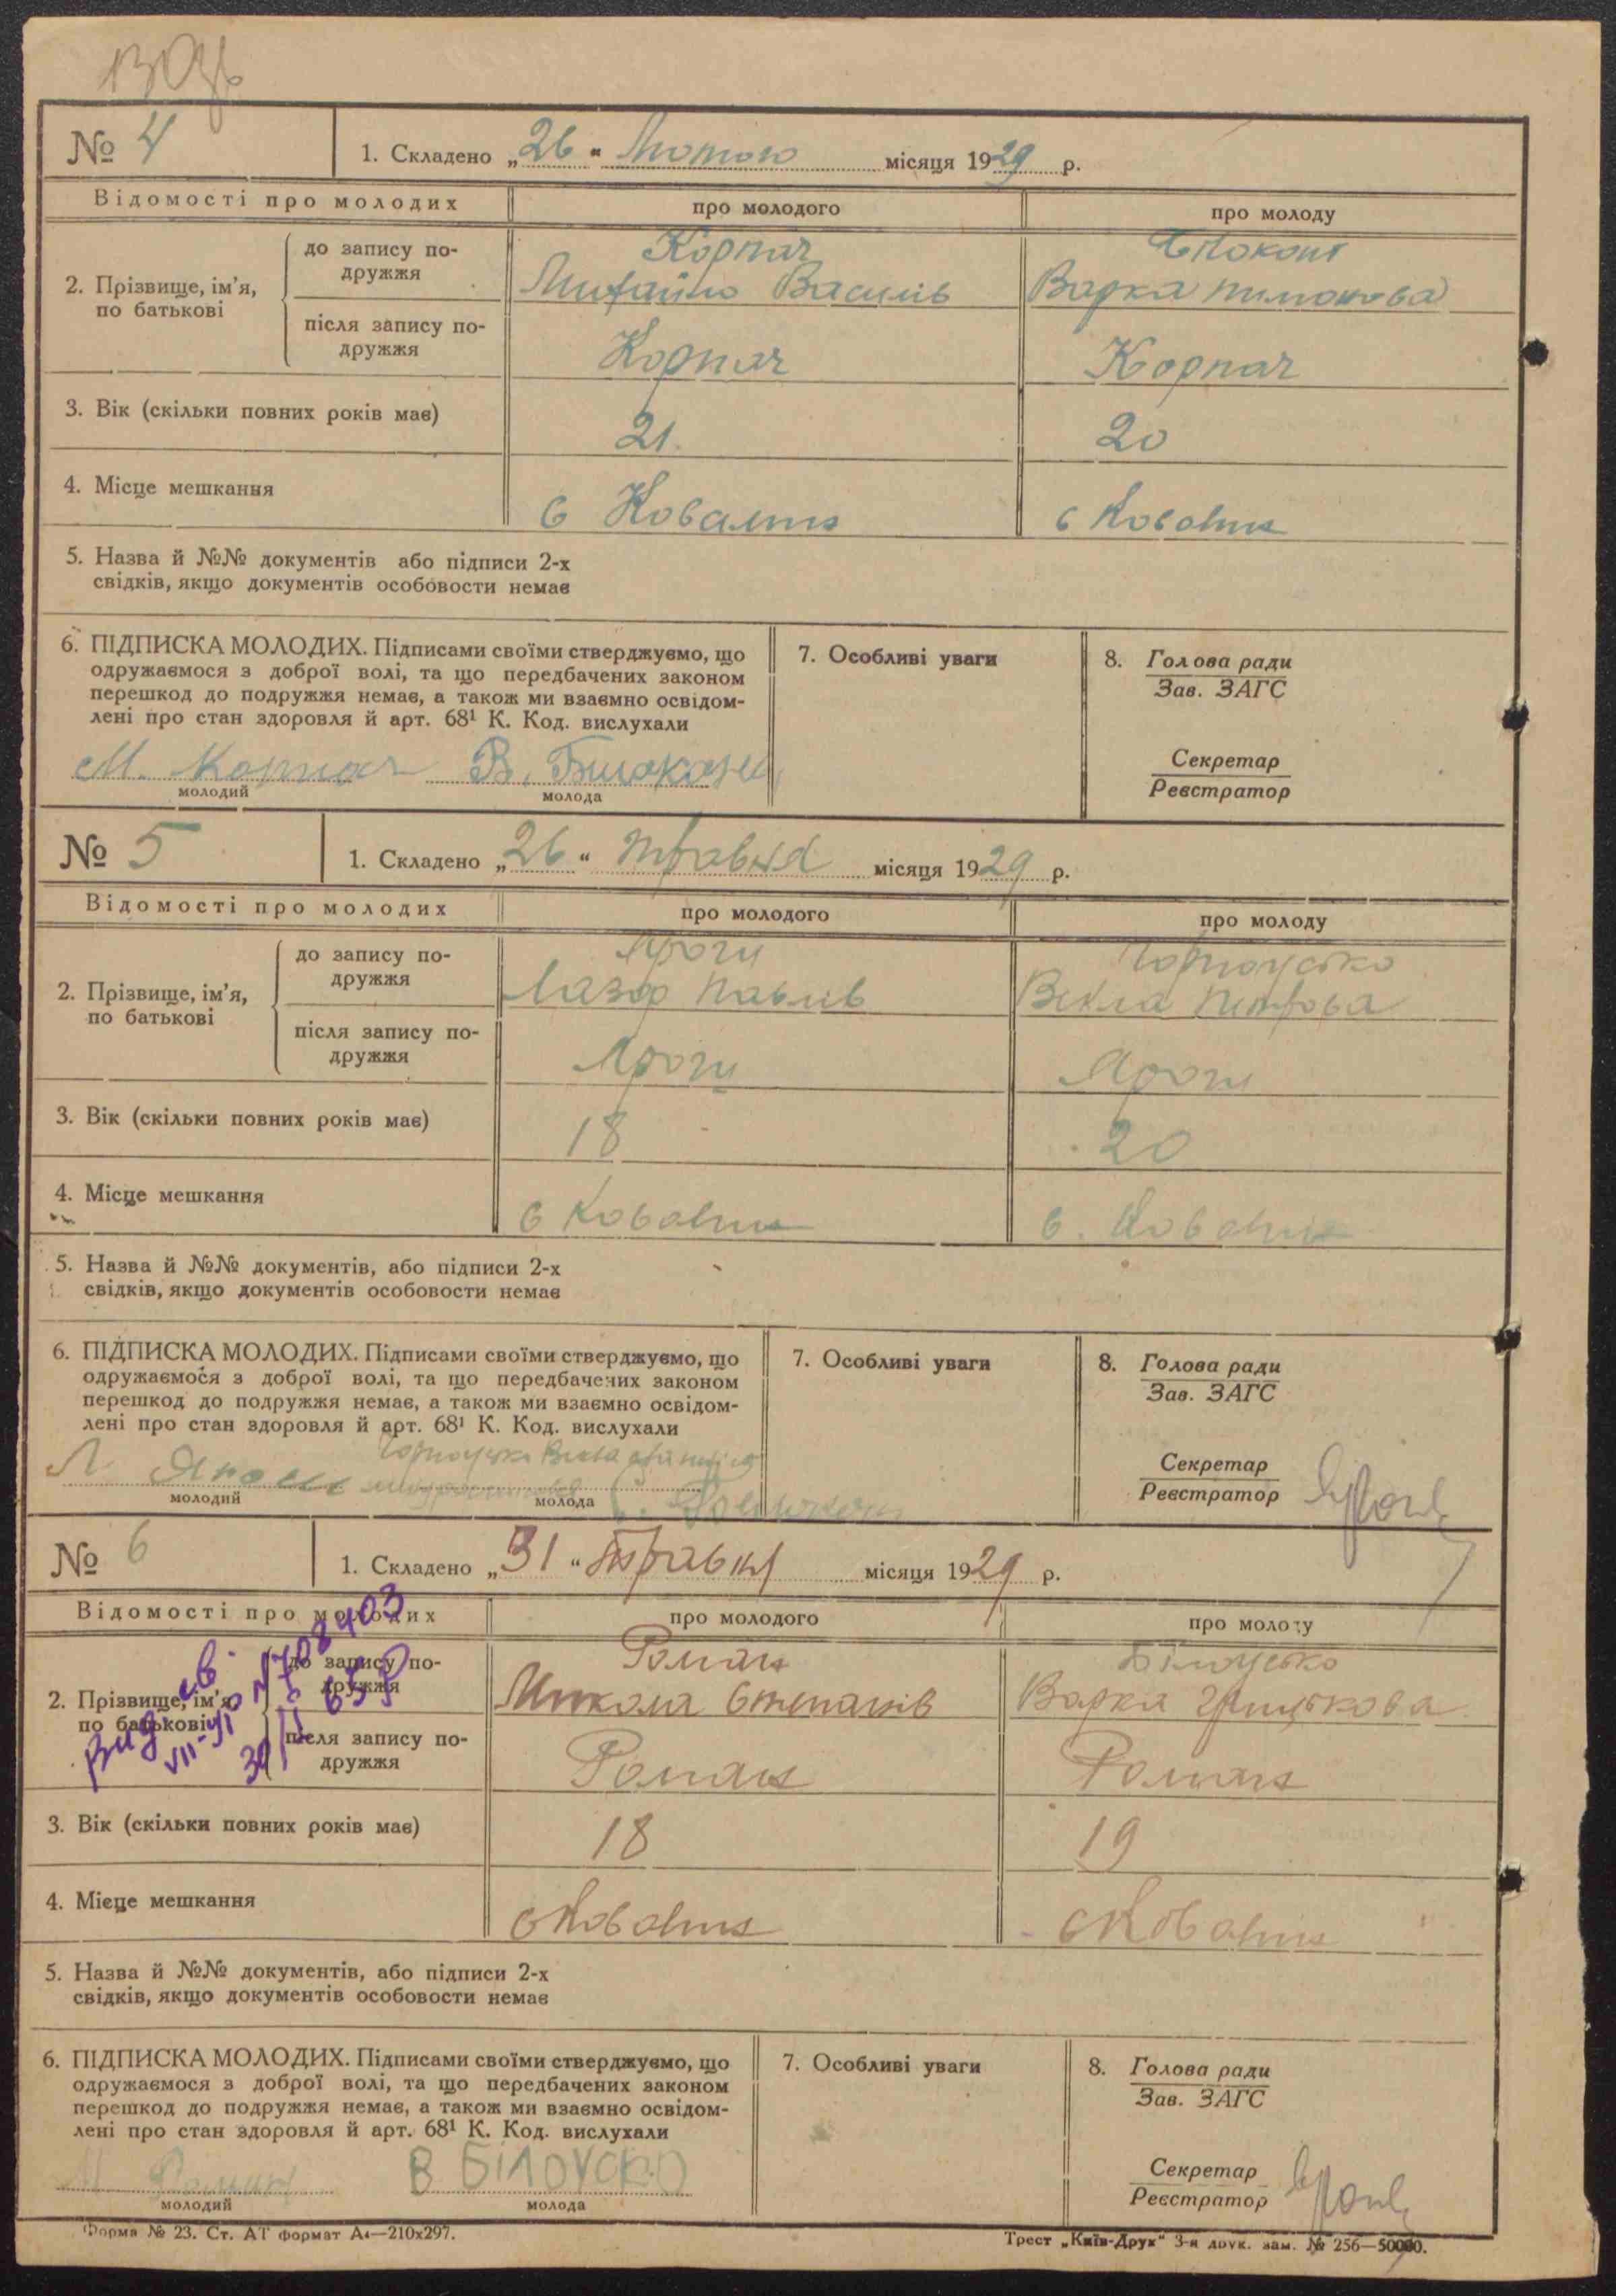 № 4
1. Складено „26“ Лютого місяця 1929 р.
Відомості про молодих
про молодого
про молоду
2. Прізвище, ім'я, по батькові
до запису подружжя
Корпач
Михайло Василів
Білоконь
Варка Тимошова
після запису подружжя
Корпач
Корпач
3. Вік (скільки повних років має)
21
20
4. Місце мешкання
с Ковалин
с Ковалин
5. Назва й №№ документів або підписи 2-х
свідків, якщо документів особовости немає
6. ПІДПИСКА МОЛОДИХ. Підписами своїми стверджуємо, що
одружаємося з доброї волі, та що передбачених законом
перешкод до подружжя немає, а також ми взаємно освідом-
лені про стан здоровля й арт. 68¹ К. Код. вислухали
М. Корпач В. Білоконь
молодий
молода
7. Особливі уваги
8. Голова ради
Зав. ЗАГС
Секретар
Реєстратор
№ 5
1. Складено „26“ травня місяця 1929 р.
Відомості про молодих
про молодого
про молоду
2. Прізвище, ім'я, по батькові
до запису подружжя
Лазор Павлів
Векла Петрова
після запису подружжя
3. Вік (скільки повних років має)
18
20
4. Місце мешкання
с Ковалин
с. Ковалин
5. Назва й №№ документів, або підписи 2-х
свідків, якщо документів особовости немає
6. ПІДПИСКА МОЛОДИХ. Підписами своїми стверджуємо, що
одружаємося з доброї волі, та що передбачених законом
перешкод до подружжя немає, а також ми взаємно освідом-
лені про стан здоровля й арт. 68¹ К. Код. вислухали
Л
молодий
молода
7. Особливі уваги
8. Голова ради
Зав. ЗАГС
Секретар
Реєстратор
№ 6
1. Складено „31“ Травня місяця 1929 р.
Відомості про молодих
про молодого
про молоду
2. Прізвище, ім'я, по батькові
до запису подружжя
Роман
Микола Степанів
Білоусько
Варка Грицькова
після запису подружжя
Роман
Роман
3. Вік (скільки повних років має)
18
19
4. Місце мешкання
с Ковалин
с Ковалин
5. Назва й №№ документів, або підписи 2-х
свідків, якщо документів особовости немає
6. ПІДПИСКА МОЛОДИХ. Підписами своїми стверджуємо, що
одружаємося з доброї волі, та що передбачених законом
перешкод до подружжя немає, а також ми взаємно освідом-
лені про стан здоровля й арт. 68¹ К. Код. вислухали
М Роман В БІЛОУСКО
молодий
молода
7. Особливі уваги
8. Голова ради
Зав. ЗАГС
Секретар
Реєстратор
Форма № 23. Ст. АТ формат А4—210х297.
Трест „Київ-Друк“ 3-я друк. зам. № 256—50000.